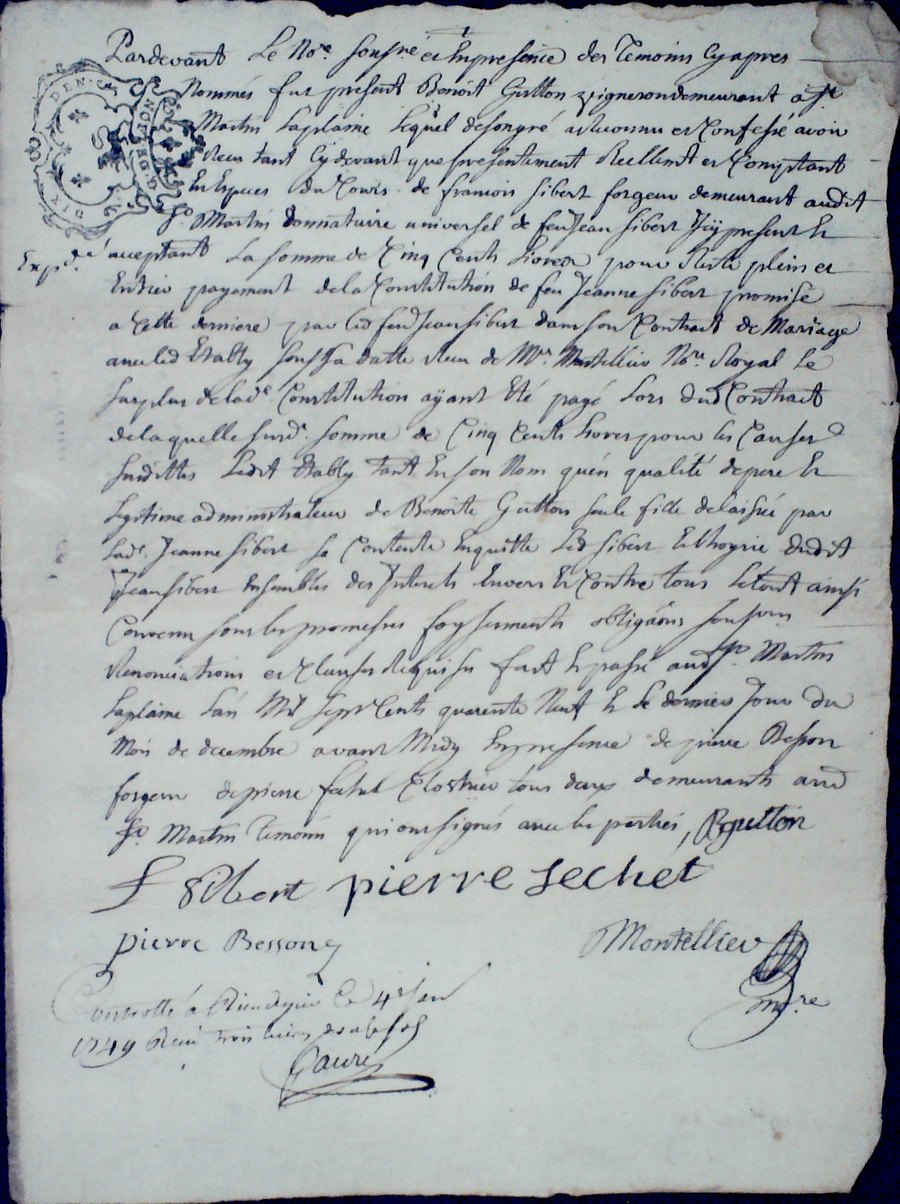 Pardevant Le No.re Sous.né et Enpresence des Temoins Cyapres
Nommés fut present Benoit Gutton vigneron demeurant a St
Martin Laplaine Lequel desongré a reconnu et Confessé avoir
Receu tant Cydevant que presentement Reellem.t et Comptant
En Especes du Cours de francois Sibert forgeur demeurant audit
St Martin donnataire universel de feu Jean Sibert Icy present et
Exp.dié
acceptant La somme de Cinq Cents Livres pour Reste plein et
Entier payement dela Constitution de feu Jeanne Sibert promise
a Cette derniere par led feu Jean Sibert dans son Contrat de Mariage
avec led Etably sous sa datte Receu de Mr. Montellier No.re Royal Le
surplus delad.e Constitution aÿant Eté payé Lors dud Contrat
delaquelle susd.e somme de Cinq Cents Livres pour les Causes
susdittes Ledit Etably tant En son Nom qu'en qualité de pere et
Legitime administrateur de Benoite Gutton seule fille delaissée par
lad.e Jeanne Sibert se Contente Enquitte Led Sibert Et hoyrie dudit
Jean Sibert Ensembles des Interets Envers Et Contre tous Letout ainsi
Convenu sous les promesses foy serments obliga.ons
Renonciations et Clauses Requises fait Et passé aud St Martin
Laplaine L'an Mil Sept Cents quarente Neuf Et Le dernier Jour du
Mois de decembre avant Midy Enpresence de pierre Besson
forgeur de pierre Clostrier tous deux demeurants aud
St Martin Temoins qui ont signés avec les parties, B gutton
F Sibert pierre sechet
pierre Besson
Montellier
no.re
Controllé à Rivedegier Le 4e Jan
1749 Receu trois livres